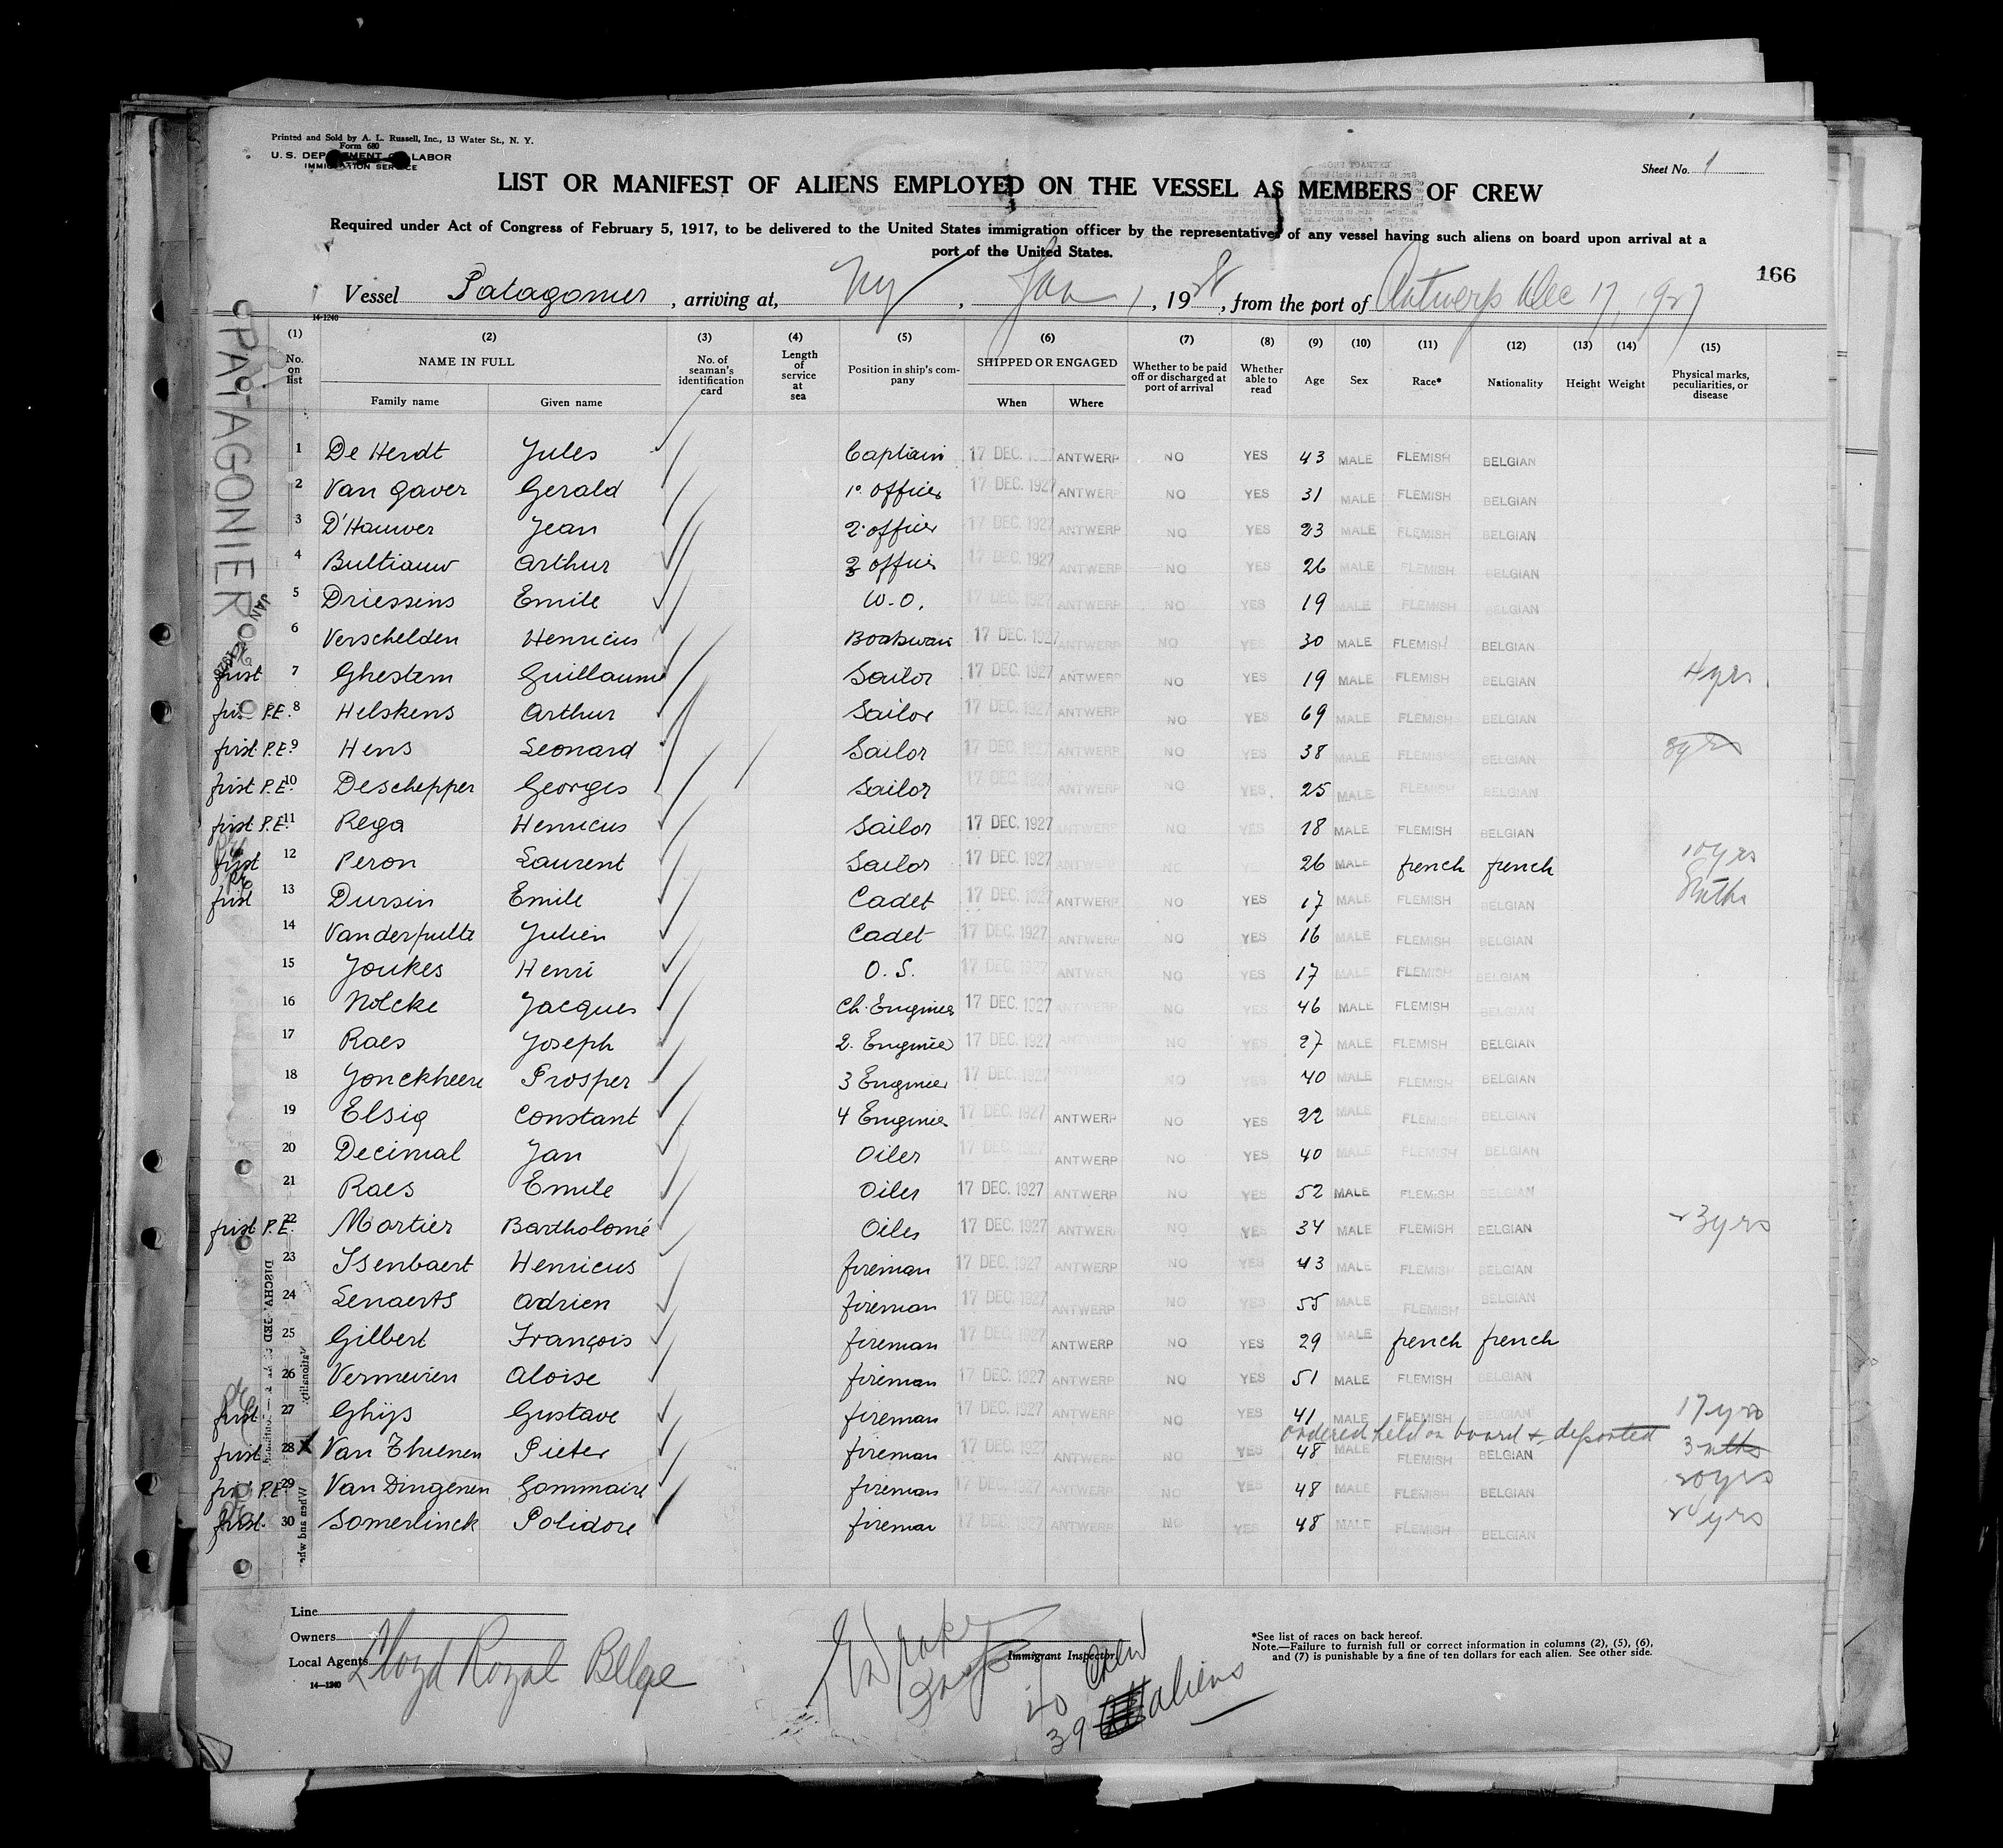 Printed and Sold by A. L. Russell, Inc., 13 Water St., N. Y.
Form 680
U. S. DEPARTMENT OF LABOR
IMMIGRATION SERVICE
Sheet No. 1
LIST OR MANIFEST OF ALIENS EMPLOYED ON THE VESSEL AS MEMBERS OF CREW
Required under Act of Congress of February 5, 1917, to be delivered to the United States immigration officer by the representatives of any vessel having such aliens on board upon arrival at a
port of the United States.
166
Vessel Patagonier, arriving at, Ny, Jan 1, 1928, from the port of Antwerp Dec 17, 1927
14-1240
PATAGONIER
(1) (2) (3) (4) (5) (6) (7) (8) (9) (10) (11) (12) (13) (14) (15)
No. on list NAME IN FULL No. of seaman's identification card Length of service at sea Position in ship's company SHIPPED OR ENGAGED Whether to be paid off or discharged at port of arrival Whether able to read Age Sex Race* Nationality Height Weight Physical marks, peculiarities, or disease
Family name Given name When Where
1 De Herdt Jules Captain 17 DEC. 1927 ANTWERP NO YES 43 MALE FLEMISH BELGIAN
2 Van Gaver Gerald 1° officer 17 DEC. 1927 ANTWERP NO YES 31 MALE FLEMISH BELGIAN
3 D'Hauwer Jean 2. officer 17 DEC. 1927 ANTWERP NO YES 23 MALE FLEMISH BELGIAN
4 Bultiauw Arthur 3 officer 17 DEC. 1927 ANTWERP NO YES 26 MALE FLEMISH BELGIAN
5 Driessens Emile W.O. 17 DEC. 1927 ANTWERP NO YES 19 MALE FLEMISH BELGIAN
6 Verschelden Henricus Boatswain 17 DEC. 1927 ANTWERP NO YES 30 MALE FLEMISH BELGIAN
first 7 Ghestem Guillaume Sailor 17 DEC. 1927 ANTWERP NO YES 19 MALE FLEMISH BELGIAN 4yrs.
first P.E. 8 Helskens Arthur Sailor 17 DEC. 1927 ANTWERP NO YES 69 MALE FLEMISH BELGIAN
first P.E. 9 Hens Leonard Sailor 17 DEC. 1927 ANTWERP NO YES 38 MALE FLEMISH BELGIAN 8yrs
first P.E. 10 Deschepper Georges Sailor 17 DEC. 1927 ANTWERP NO YES 25 MALE FLEMISH BELGIAN
first P.E. 11 Rega Henricus Sailor 17 DEC. 1927 ANTWERP NO YES 18 MALE FLEMISH BELGIAN
first 12 Peron Laurent Sailor 17 DEC. 1927 ANTWERP NO 26 MALE french french 10yrs
first 13 Dursin Emile Cadet 17 DEC. 1927 ANTWERP NO YES 17 MALE FLEMISH BELGIAN
14 Vanderputte Julien Cadet 17 DEC. 1927 ANTWERP NO YES 16 MALE FLEMISH BELGIAN
15 Joukes Henri O.S. 17 DEC. 1927 ANTWERP NO YES 17 MALE FLEMISH BELGIAN
16 Nolcke Jacques Ch. Engineer 17 DEC. 1927 ANTWERP NO YES 46 MALE FLEMISH BELGIAN
17 Raes Joseph 2. Engineer 17 DEC. 1927 ANTWERP NO YES 27 MALE FLEMISH BELGIAN
18 Jonckheere Prosper 3 Engineer 17 DEC. 1927 ANTWERP NO YES 40 MALE FLEMISH BELGIAN
19 Elsig Constant 4 Engineer 17 DEC. 1927 ANTWERP NO YES 22 MALE FLEMISH BELGIAN
20 Decimal Jan Oiler 17 DEC. 1927 ANTWERP NO YES 40 MALE FLEMISH BELGIAN
21 Raes Emile Oiler 17 DEC. 1927 ANTWERP NO YES 52 MALE FLEMISH BELGIAN
first P.E. 22 Mortier Bartholomé Oiler 17 DEC. 1927 ANTWERP NO YES 34 MALE FLEMISH BELGIAN 23yrs
23 Isenbaert Henricus fireman 17 DEC. 1927 ANTWERP NO YES 43 MALE FLEMISH BELGIAN
24 Lenaerts Adrien fireman 17 DEC. 1927 ANTWERP NO YES 55 MALE FLEMISH BELGIAN
25 Gilbert François fireman 17 DEC. 1927 ANTWERP NO YES 29 MALE french french
26 Vermeiren Aloise fireman 17 DEC. 1927 ANTWERP NO YES 51 MALE FLEMISH BELGIAN
first 27 Ghijs Gustave fireman 17 DEC. 1927 ANTWERP NO YES 41 MALE FLEMISH BELGIAN 17yrs
ordered held on board & deported
first 28 X Van Thienen Pieter fireman 17 DEC. 1927 ANTWERP NO YES 48 MALE FLEMISH BELGIAN 3 mths
first P.E. 29 Van Dingenen Gommaire fireman 17 DEC. 1927 ANTWERP NO YES 48 MALE FLEMISH BELGIAN 20yrs
first 30 Somerlinck Polidore fireman 17 DEC. 1927 ANTWERP NO YES 48 MALE FLEMISH BELGIAN 24yrs
Line
Owners
Local Agents Lloyd Royal Belge
14-1240
Immigrant Inspector.
40 Crew
39 aliens
*See list of races on back hereof.
Note.—Failure to furnish full or correct information in columns (2), (5), (6),
and (7) is punishable by a fine of ten dollars for each alien. See other side.